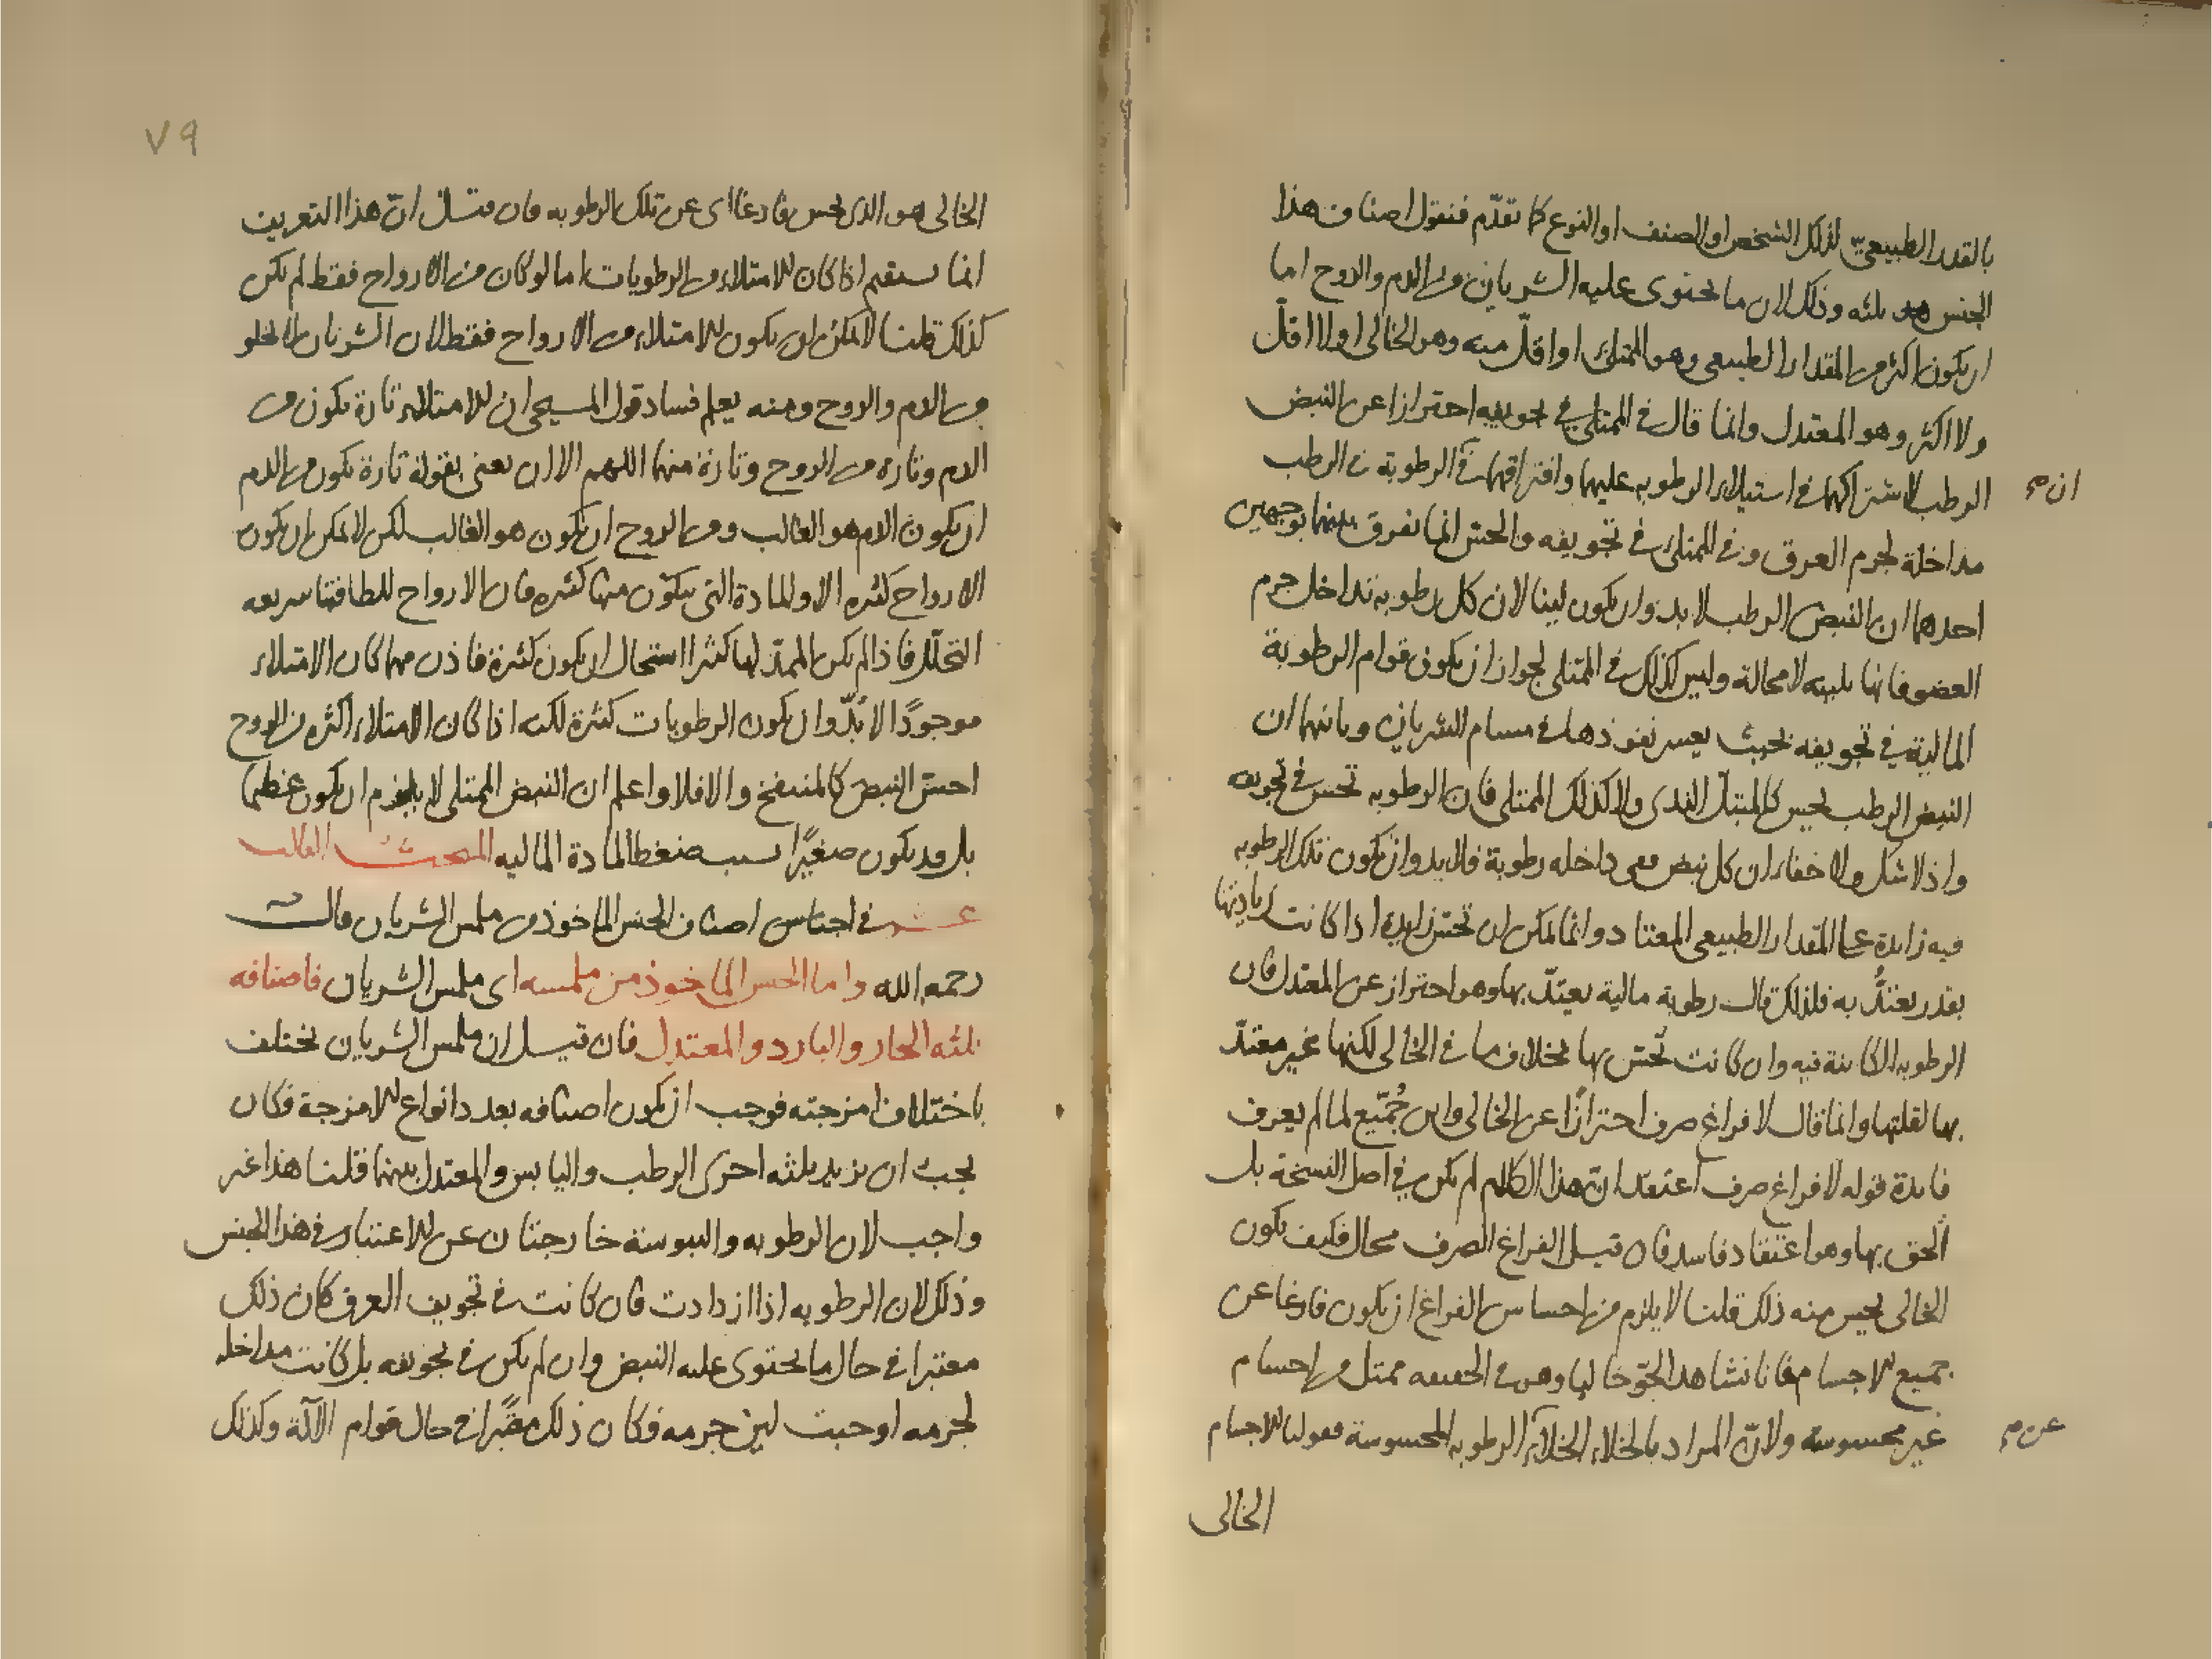 بالقدر الطبيعيّ لذلك الشخص او الصنف او النوع كما تقدّم فنقول اصناف هذا
الجنس هو ثلثه وذلك لان ما يحتوى عليه الشريان من الدم والروح اما
ان يكون اكثر من المقدار الطبيعى وهو الممتلئ او اقلّ منه وهو الخالى او لا اقلّ
ولا اكثر وهو المعتدل وانما قال فى الممتلى فى تجويفه احترازا عن النبض
الرطب لاشتراكهما فى استيلاء الرطوبه عليهما وافتراقهما فى ان الرطوبة فى الرطب
ان صح
مداخلة لجرم العرق وفى الممتلئ فى تجويفه والحسّ انما يفرق بينهما بوجهين
احدهما ان النبض الرطب لا بد وان يكون لينا لان كل رطوبه تداخل جرم
العضو فانها تلينه لا محالة وليس كذلك فى الممتلى لجواز ان يكون قوام الرطوبة
المالية فى تجويفه بحيث يعسر نفوذها فى مسام الشريان وثانيهما ان
النبض الرطب يحس كالمبتلّ الندى ولا كذلك الممتلى فان الرطوبه تحس فى تجويفه
واذ لا شك ولا خفاء ان كل نبض ففى داخله رطوبة فلا بد وان يكون تلك الرطوبه
فيه زايدة على المقدار الطبيعى المعتاد وانما يمكن ان تحسّ زايدة اذا كانت زيادتها
بقدر يعتدُّ به فلذلك قال رطوبة مالية يعتدّ بها وهو احتراز عن المعتدل فان
الرطوبه الكاينة فيه وان كانت تحسّ بها بخلاف ما فى الخالى لكنها غير معتدّ
بها لقلتها وانما قال لا فراغ صرف احترازًا عن الخالى وابن جُمَيّع لما لم يعرف
فايدة قوله لا فراغ صرف اعتقد ان هذا الكلام لم يكن فى اصل النسخة بل
أُلحق بها وهو اعتقاد فاسد فان قيل الفراغ الصرف محال فكيف يكون
الخالى يحس منه ذلك قلنا لا يلزم من احساس الفراغ ان يكون فارغا عن
جميع الاجسام فانا نشاهد الجوّ خاليا وهو فى الحقيقه ممتل من اجسام
غير محسوسة ولانّ المراد بالخلاء الخلاء عن الرطوبه المحسوسة فقولنا الاجسام
عن صح
الخالى
٧٩
الخالى هو الذى يحس فارغا اى عن تلك الرطوبه فان قيل انّ هذا التعريف
انما يستقيم اذا كان الامتلاء من الرطوبات اما لو كان من الارواح فقط لم يكن
كذلك قلنا لا يمكن ان يكون الامتلاء من الارواح فقط لان الشريان لا يخلو
من الدم والروح ومنه يعلم فساد قول المسيحى ان الامتلاء تارة يكون من
الدم وتارة من الروح وتارة منهما اللهم الا ان يعنى بقوله تارة يكون من الدم
ان يكون الدم هو الغالب ومن الروح ان يكون هو الغالب لكن لا يمكن ان يكون
الارواح كثيره الا والمادة التى يتكوّن منها كثيره فان الارواح للطافتها سريعه
التحلّل فاذا لم يكن الممدّ لها كثيرا استحال ان يكون كثيرة فاذن مهما كان الامتلاء
موجودًا لا بُدّ وان يكون الرطوبات كثيرة لكنه اذا كان الامتلاء اكثره من الروح
احسّ النبض كالمنتفخ والا فلا واعلم ان النبض الممتلى لا يلزم ان يكون عظيما
بل قد يكون صغيًرا بسبب ضغط المادة المالية المبحث الثالث
عشر فى اجناس اصناف الجنس الماخوذ من ملمس الشريان قال
رحمه الله واما الجنس الماخوذ من ملمسه اى ملمس الشريان فاصنافه
ثلثه الحار والبارد والمعتدل فان قيل ان ملمس الشريان يختلف
باختلاف امزجته فوجب ان يكون اصنافه بعدد انواع الامزجة فكان
يجب ان يزيد ثلثه اخرى الرطب واليابس والمعتدل بينهما قلنا هذا غير
واجب لان الرطوبه واليبوسة خارجتان عن الاعتبار فى هذا الجنس
وذلك لان الرطوبه اذا ازدادت فان كانت فى تجويف العرق كان ذلك
معتبرا فى حال ما يحتوى عليه النبض وان لم يكن فى تجويفه بل كانت مداخله
لجرمه اوجبت لين جرمه فكان ذلك معتبرا فى حال قوام الآلة وكذلك